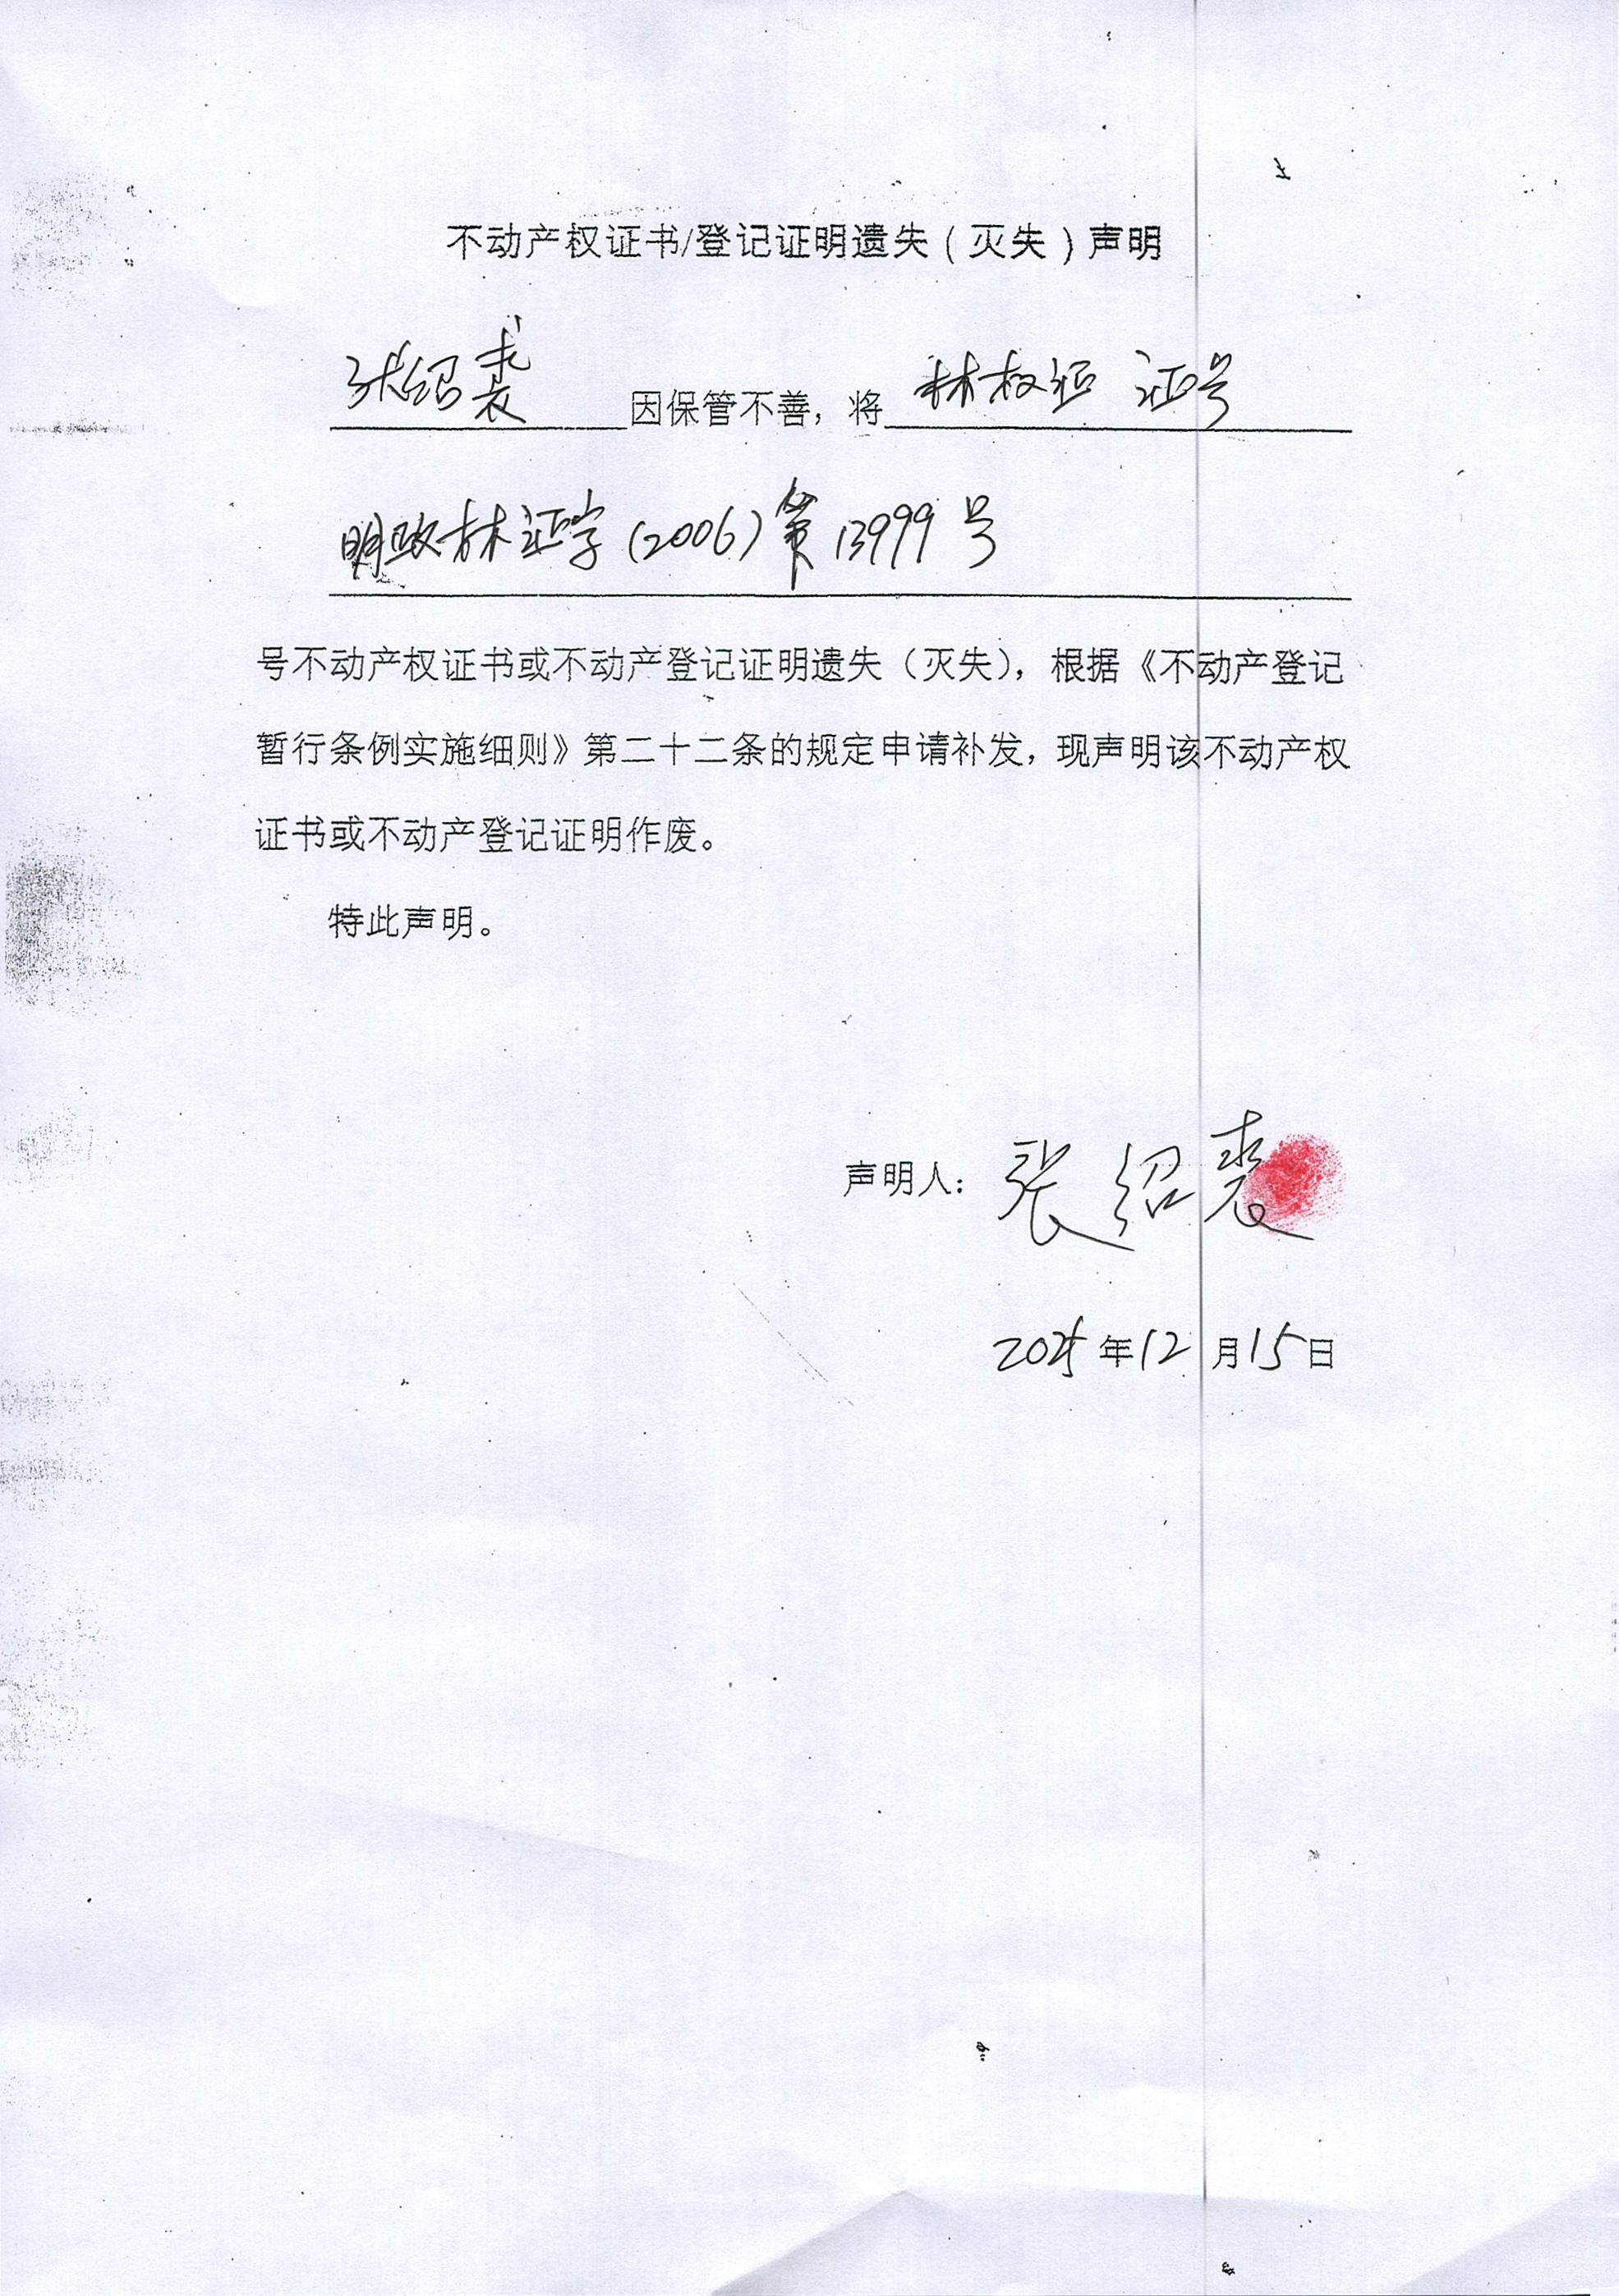 不动产权证书/登记证明遗失（灭失）声明
张绍裘因保管不善，将林权证 证号
明政林证字(2006)第13999号
号不动产权证书或不动产登记证明遗失（灭失），根据《不动产登记
暂行条例实施细则》第二十二条的规定申请补发，现声明该不动产权
证书或不动产登记证明作废。
特此声明。
声明人：张绍裘
2025年12月15日